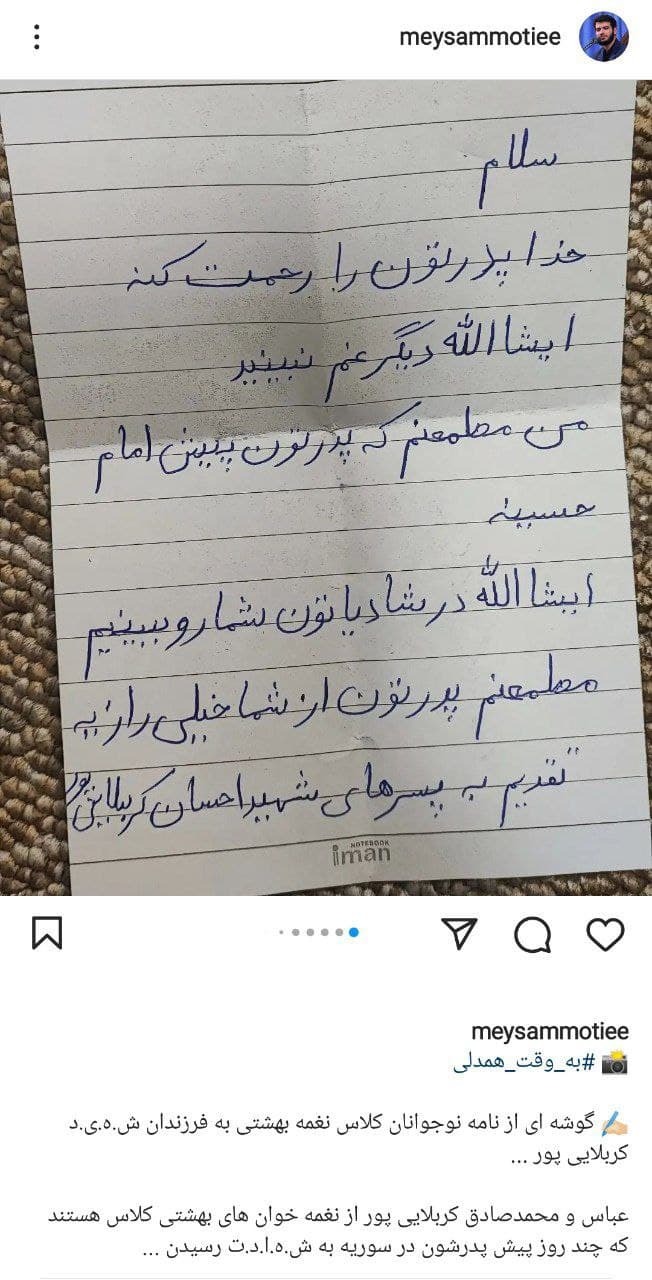 meysammotiee
سلام
خدا پدرتون را رحمت کنه
ایشاالله دیگر غم نبینید
من مطمعنم که پدرتون پیش امام
حسینه
ایشاالله در شادیاتون شمارو ببینیم
مطمعنم پدرتون از شما خیلی رازیه
تقدیم به پسرهای شهید احسان کربلایی پور
NOTEBOOK
iman
meysammotiee
📸 #به_وقت_همدلی
✍🏻 گوشه ای از نامه نوجوانان کلاس نغمه بهشتی به فرزندان ش.ه.ی.د
کربلایی پور ...
عباس و محمدصادق کربلایی پور از نغمه خوان های بهشتی کلاس هستند
که چند روز پیش پدرشون در سوریه به ش.ه.ا.د.ت رسیدن ...